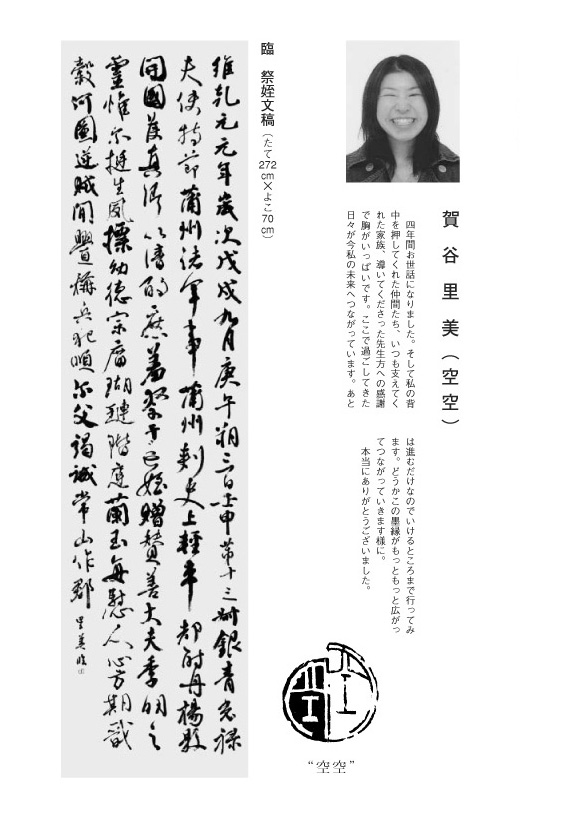 賀谷里美（空空）
四年間お世話になりました。そして私の背
中を押してくれた仲間たち、いつも支えてく
れた家族、導いてくださった先生方への感謝
で胸がいっぱいです。ここで過ごしてきた
日々が今私の未来へつながっています。あと
は進むだけなのでいけるところまで行ってみ
ます。どうかこの墨縁がもっともっと広がっ
てつながっていきます様に。
本当にありがとうございました。
“空空”
臨　祭姪文稿（たて272cm×よこ70cm）
維乾元元年歲次戊戌九月庚午朔三日壬申第十三叔銀青光祿
夫使持節蒲州諸軍事蒲州刺史上輕車都尉丹楊縣
開國侯真卿以清酌庶羞祭于亡姪贈贊善大夫季明之
靈惟爾挺生夙標幼德宗廟瑚璉階庭蘭玉每慰人心方期戩
穀何圖逆賊間釁稱兵犯順爾父竭誠常山作郡
里美臨